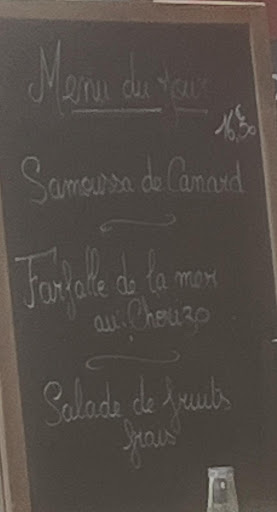 Menu du jour
16,€30
Samoussa de Canard
Farfalle de la mer
au Chorizo
Salade de fruits
frais